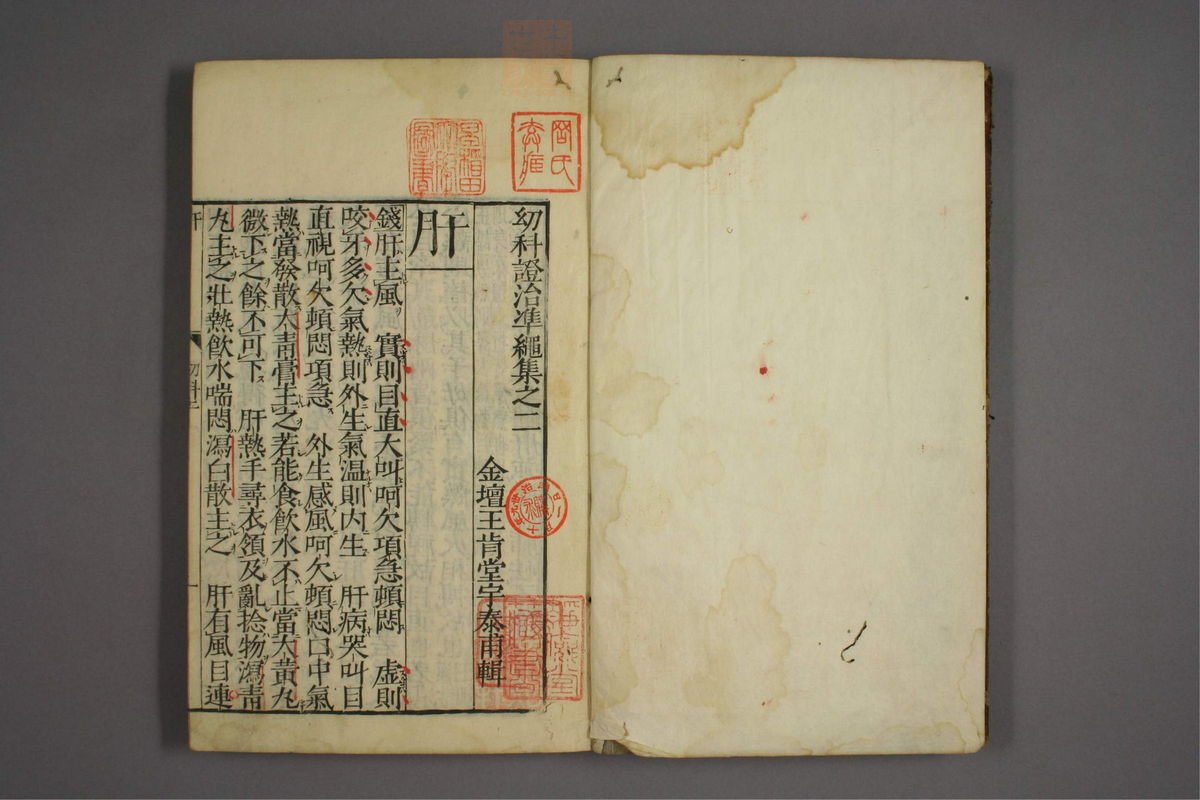 幼科證治準繩集之二
金壇王肯堂宇泰甫輯
肝
錢肝主風 實則目直大叫呵欠項急頓悶 虛則
咬牙多欠氣熱則外生氣温則内生 肝病哭叫目
直視呵欠頓悶項急 外生感風呵欠頓悶口中氣
熱當發散大青膏主之若能食飲水不止當大黄丸
微下之餘不可下 肝熱手尋衣領及亂捻物瀉青
丸主之壯熱飲水喘悶瀉白散主之 肝有風目連
早稻田
圖書
氏